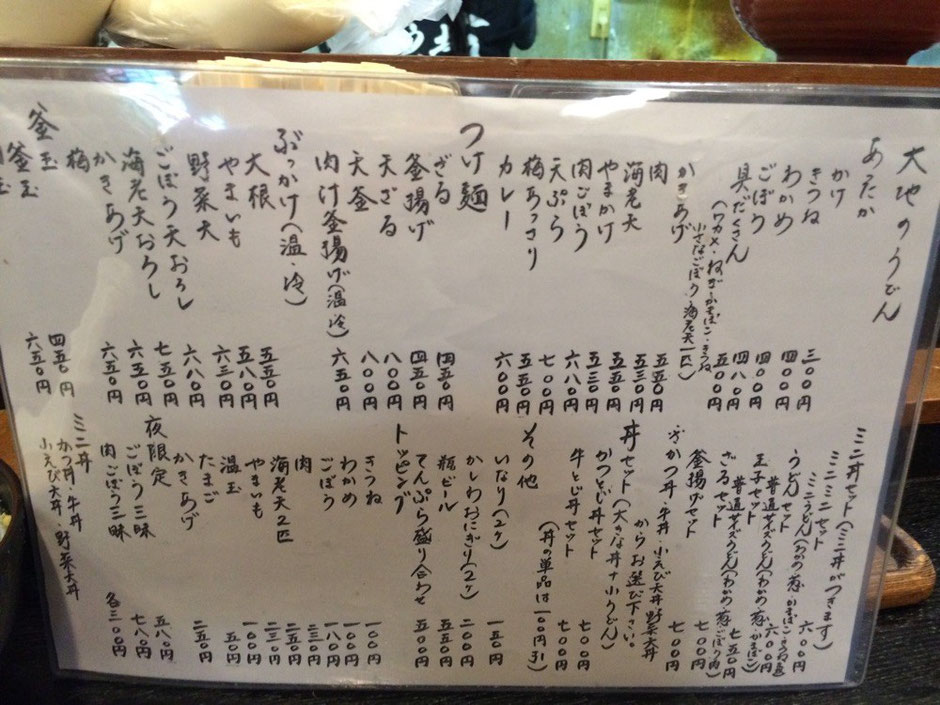 大地のうどん
あったか
かけ 三〇〇円
きつね 四〇〇円
わかめ 四〇〇円
ごぼう 四八〇円
具だくさん 五〇〇円
(ワカメ・ねぎ・かまぼこ・きつね
小さなごぼう・海老天一匹)
かきあげ 五五〇円
肉 五三〇円
海老天 五五〇円
やまかけ 五三〇円
肉ごぼう 六八〇円
天ぷら 七〇〇円
梅あっさり 五五〇円
カレー 六〇〇円
つけ麺
ざる 四五〇円
釜揚げ 四五〇円
天ざる 八〇〇円
天釜 八〇〇円
肉汁釜揚げ(温冷) 六五〇円
ぶっかけ(温・冷)
大根 五五〇円
やまいも 五八〇円
野菜天 六三〇円
ごぼう天おろし 六八〇円
海老天おろし 七五〇円
かきあげ 六五〇円
梅 六五〇円
釜玉
釜玉 四五〇円
玉 六五〇円
ミニ丼セット(ミニ丼がつきます)
ミニミニセット
ミニうどん(わかめ・葱・かまぼこ・きつね) 六〇〇円
うどんセット
普通サイズうどん(わかめ・葱・かまぼこ) 六〇〇円
玉子セット
普通サイズうどん(わかめ・葱・ごぼう・肉) 七五〇円
ざるセット 七〇〇円
釜揚げセット 七〇〇円
※かつ丼・牛丼・小えび天丼・野菜天丼
からお選び下さい。
丼セット(大きな丼+小うどん)
かつとじ丼セット 七〇〇円
牛とじ丼セット 七〇〇円
(丼の単品は一〇〇円引)
その他
いなり(2ケ) 一五〇円
かしわおにぎり(2ケ) 二〇〇円
瓶ビール 五〇〇円
てんぷら盛り合わせ 五五〇円
トッピング
きつね 一〇〇円
わかめ 一〇〇円
ごぼう 一八〇円
肉 二三〇円
海老天2匹 二五〇円
やまいも 二三〇円
温玉 一〇〇円
たまご 五〇円
かきあげ 二五〇円
夜限定
ごぼう三昧 五八〇円
肉ごぼう三昧 七八〇円
ミニ丼 各三〇〇円
かつ丼・牛丼
小えび天丼・野菜天丼